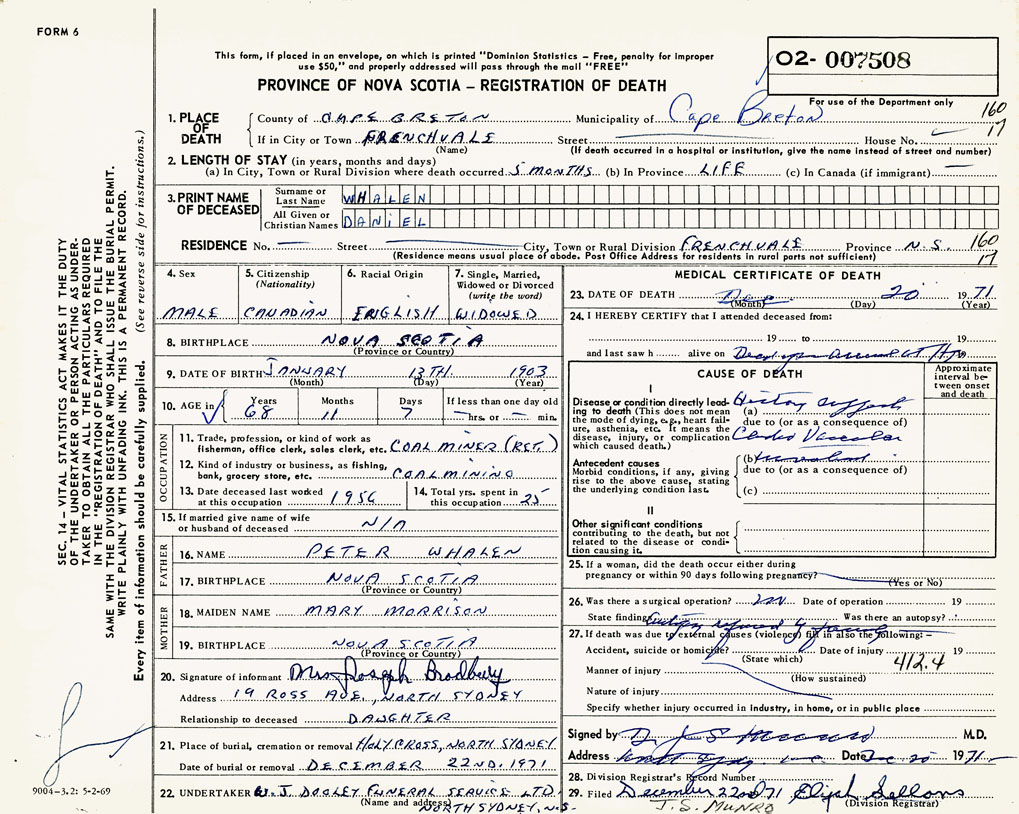 FORM 6
This form, if placed in an envelope, on which is printed "Dominion Statistics – Free, penalty for improper
use $50," and properly addressed will pass through the mail "FREE"
02- 007508
PROVINCE OF NOVA SCOTIA – REGISTRATION OF DEATH
For use of the Department only
160
17
1. PLACE OF DEATH
County of CAPE BRETON Municipality of Cape Breton
If in City or Town FRENCHVALE Street House No.
(Name) (If death occurred in a hospital or institution, give the name instead of street and number)
2. LENGTH OF STAY (in years, months and days)
(a) In City, Town or Rural Division where death occurred 5 MONTHS (b) In Province LIFE (c) In Canada (if immigrant) —
3. PRINT NAME OF DECEASED
Surname or Last Name WHALEN
All Given or Christian Names DANIEL
RESIDENCE No. — Street City, Town or Rural Division FRENCHVALE Province N.S. 160
(Residence means usual place of abode. Post Office Address for residents in rural parts not sufficient) 17
4. Sex
MALE
5. Citizenship
(Nationality)
CANADIAN
6. Racial Origin
ENGLISH
7. Single, Married,
Widowed or Divorced
(write the word)
WIDOWED
8. BIRTHPLACE NOVA SCOTIA
(Province or Country)
9. DATE OF BIRTH JANUARY 13TH. 1903
(Month) (Day) (Year)
10. AGE in Years Months Days If less than one day old
68 11 7 — hrs. or — min.
OCCUPATION
11. Trade, profession, or kind of work as
fisherman, office clerk, sales clerk, etc. COAL MINER (RET.)
12. Kind of industry or business, as fishing,
bank, grocery store, etc. COAL MINING
13. Date deceased last worked
at this occupation 1956
14. Total yrs. spent in
this occupation 25
15. If married give name of wife
or husband of deceased N/A
FATHER
16. NAME PETER WHALEN
17. BIRTHPLACE NOVA SCOTIA
(Province or Country)
MOTHER
18. MAIDEN NAME MARY MORRISON
19. BIRTHPLACE NOVA SCOTIA
(Province or Country)
20. Signature of informant Mrs Joseph Bradbury
Address 19 ROSS AVE., NORTH SYDNEY
Relationship to deceased DAUGHTER
21. Place of burial, cremation or removal HOLY CROSS, NORTH SYDNEY
Date of burial or removal DECEMBER 22ND. 1971
22. UNDERTAKER W. J. DOOLEY FUNERAL SERVICE LTD.
(Name and address) NORTH SYDNEY, N.S.
MEDICAL CERTIFICATE OF DEATH
23. DATE OF DEATH Dec 20 1971
(Month) (Day) (Year)
24. I HEREBY CERTIFY that I attended deceased from:
19 to 19
and last saw h alive on Dead upon arrival at 19
CAUSE OF DEATH
Approximate
interval be-
tween onset
and death
I
Disease or condition directly lead-
ing to death (This does not mean
the mode of dying, e.g., heart fail-
ure, asthenia, etc. It means the
disease, injury, or complication
which caused death.)
(a) History suggests
due to (or as a consequence of)
Cardio Vascular
Antecedent causes
Morbid conditions, if any, giving
rise to the above cause, stating
the underlying condition last.
(b)
due to (or as a consequence of)
(c)
II
Other significant conditions
contributing to the death, but not
related to the disease or condi-
tion causing it.
25. If a woman, did the death occur either during
pregnancy or within 90 days following pregnancy?
(Yes or No)
26. Was there a surgical operation? Date of operation 19
State findings Was there an autopsy?
Autopsy refused by family
27. If death was due to external causes (violence) fill in also the following: –
Accident, suicide or homicide? Date of injury 19
(State which)
412.4
Manner of injury
(How sustained)
Nature of injury
Specify whether injury occurred in industry, in home, or in public place
Signed by Dr J S Munro M.D.
Address Date Dec 20 1971
28. Division Registrar's Record Number
29. Filed December 22nd 71 Elijah Sellons
J. S. MUNRO (Division Registrar)
SEC. 14 – VITAL STATISTICS ACT MAKES IT THE DUTY
OF THE UNDERTAKER OR PERSON ACTING AS UNDER-
TAKER TO OBTAIN ALL THE PARTICULARS REQUIRED
IN THE "REGISTRATION OF DEATH" AND TO FILE THE
SAME WITH THE DIVISION REGISTRAR WHO SHALL ISSUE THE BURIAL PERMIT.
WRITE PLAINLY WITH UNFADING INK. THIS IS A PERMANENT RECORD.
Every item of information should be carefully supplied. (See reverse side for instructions.)
9004–3.2: 5-2-69